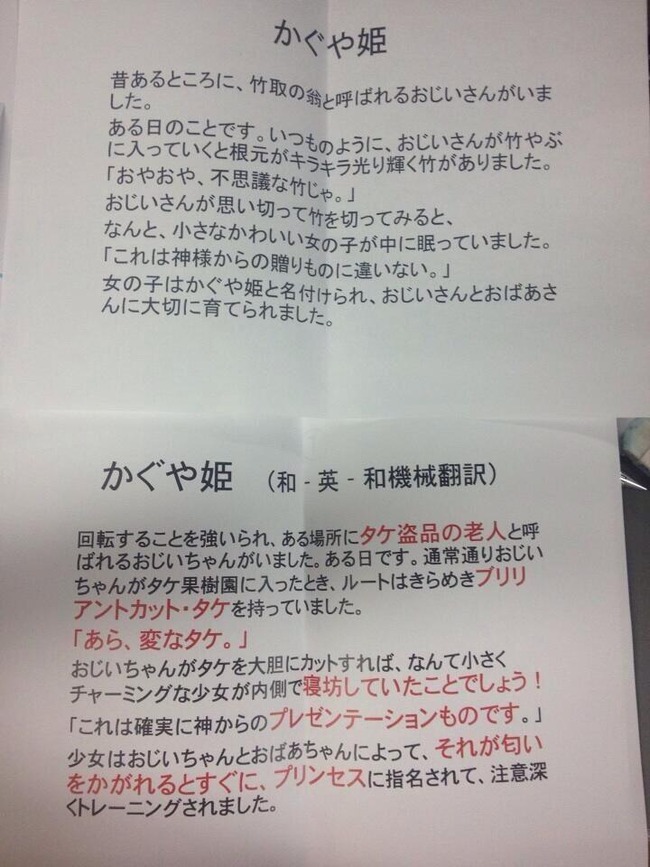 かぐや姫
昔あるところに、竹取の翁と呼ばれるおじいさんがいま
した。
ある日のことです。いつものように、おじいさんが竹やぶ
に入っていくと根元がキラキラ光り輝く竹がありました。
「おやおや、不思議な竹じゃ。」
おじいさんが思い切って竹を切ってみると、
なんと、小さなかわいい女の子が中に眠っていました。
「これは神様からの贈りものに違いない。」
女の子はかぐや姫と名付けられ、おじいさんとおばあさ
んに大切に育てられました。
かぐや姫 （和‐英‐和機械翻訳）
回転することを強いられ、ある場所にタケ盗品の老人と呼
ばれるおじいちゃんがいました。ある日です。通常通りおじい
ちゃんがタケ果樹園に入ったとき、ルートはきらめきブリリ
アントカット・タケを持っていました。
「あら、変なタケ。」
おじいちゃんがタケを大胆にカットすれば、なんて小さく
チャーミングな少女が内側で寝坊していたことでしょう！
「これは確実に神からのプレゼンテーションものです。」
少女はおじいちゃんとおばあちゃんによって、それが匂い
をかがれるとすぐに、プリンセスに指名されて、注意深
くトレーニングされました。